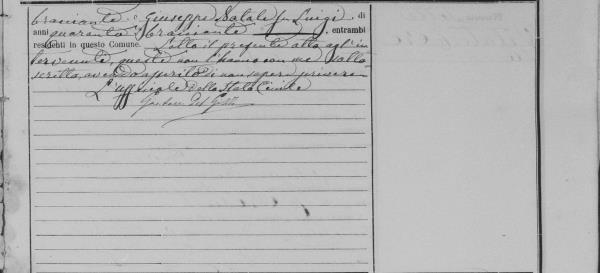 bracciante e Giuseppe Natale fu Luigi, di
anni quaranta bracciante, entrambi
residenti in questo Comune. Letto il presente atto agl'in
tervenuti, questi non l'hanno con me sotto
scritto, avendo asserito di non sapere scrivere
L'Uffiziale dello Stato Civile
Gaetano Del